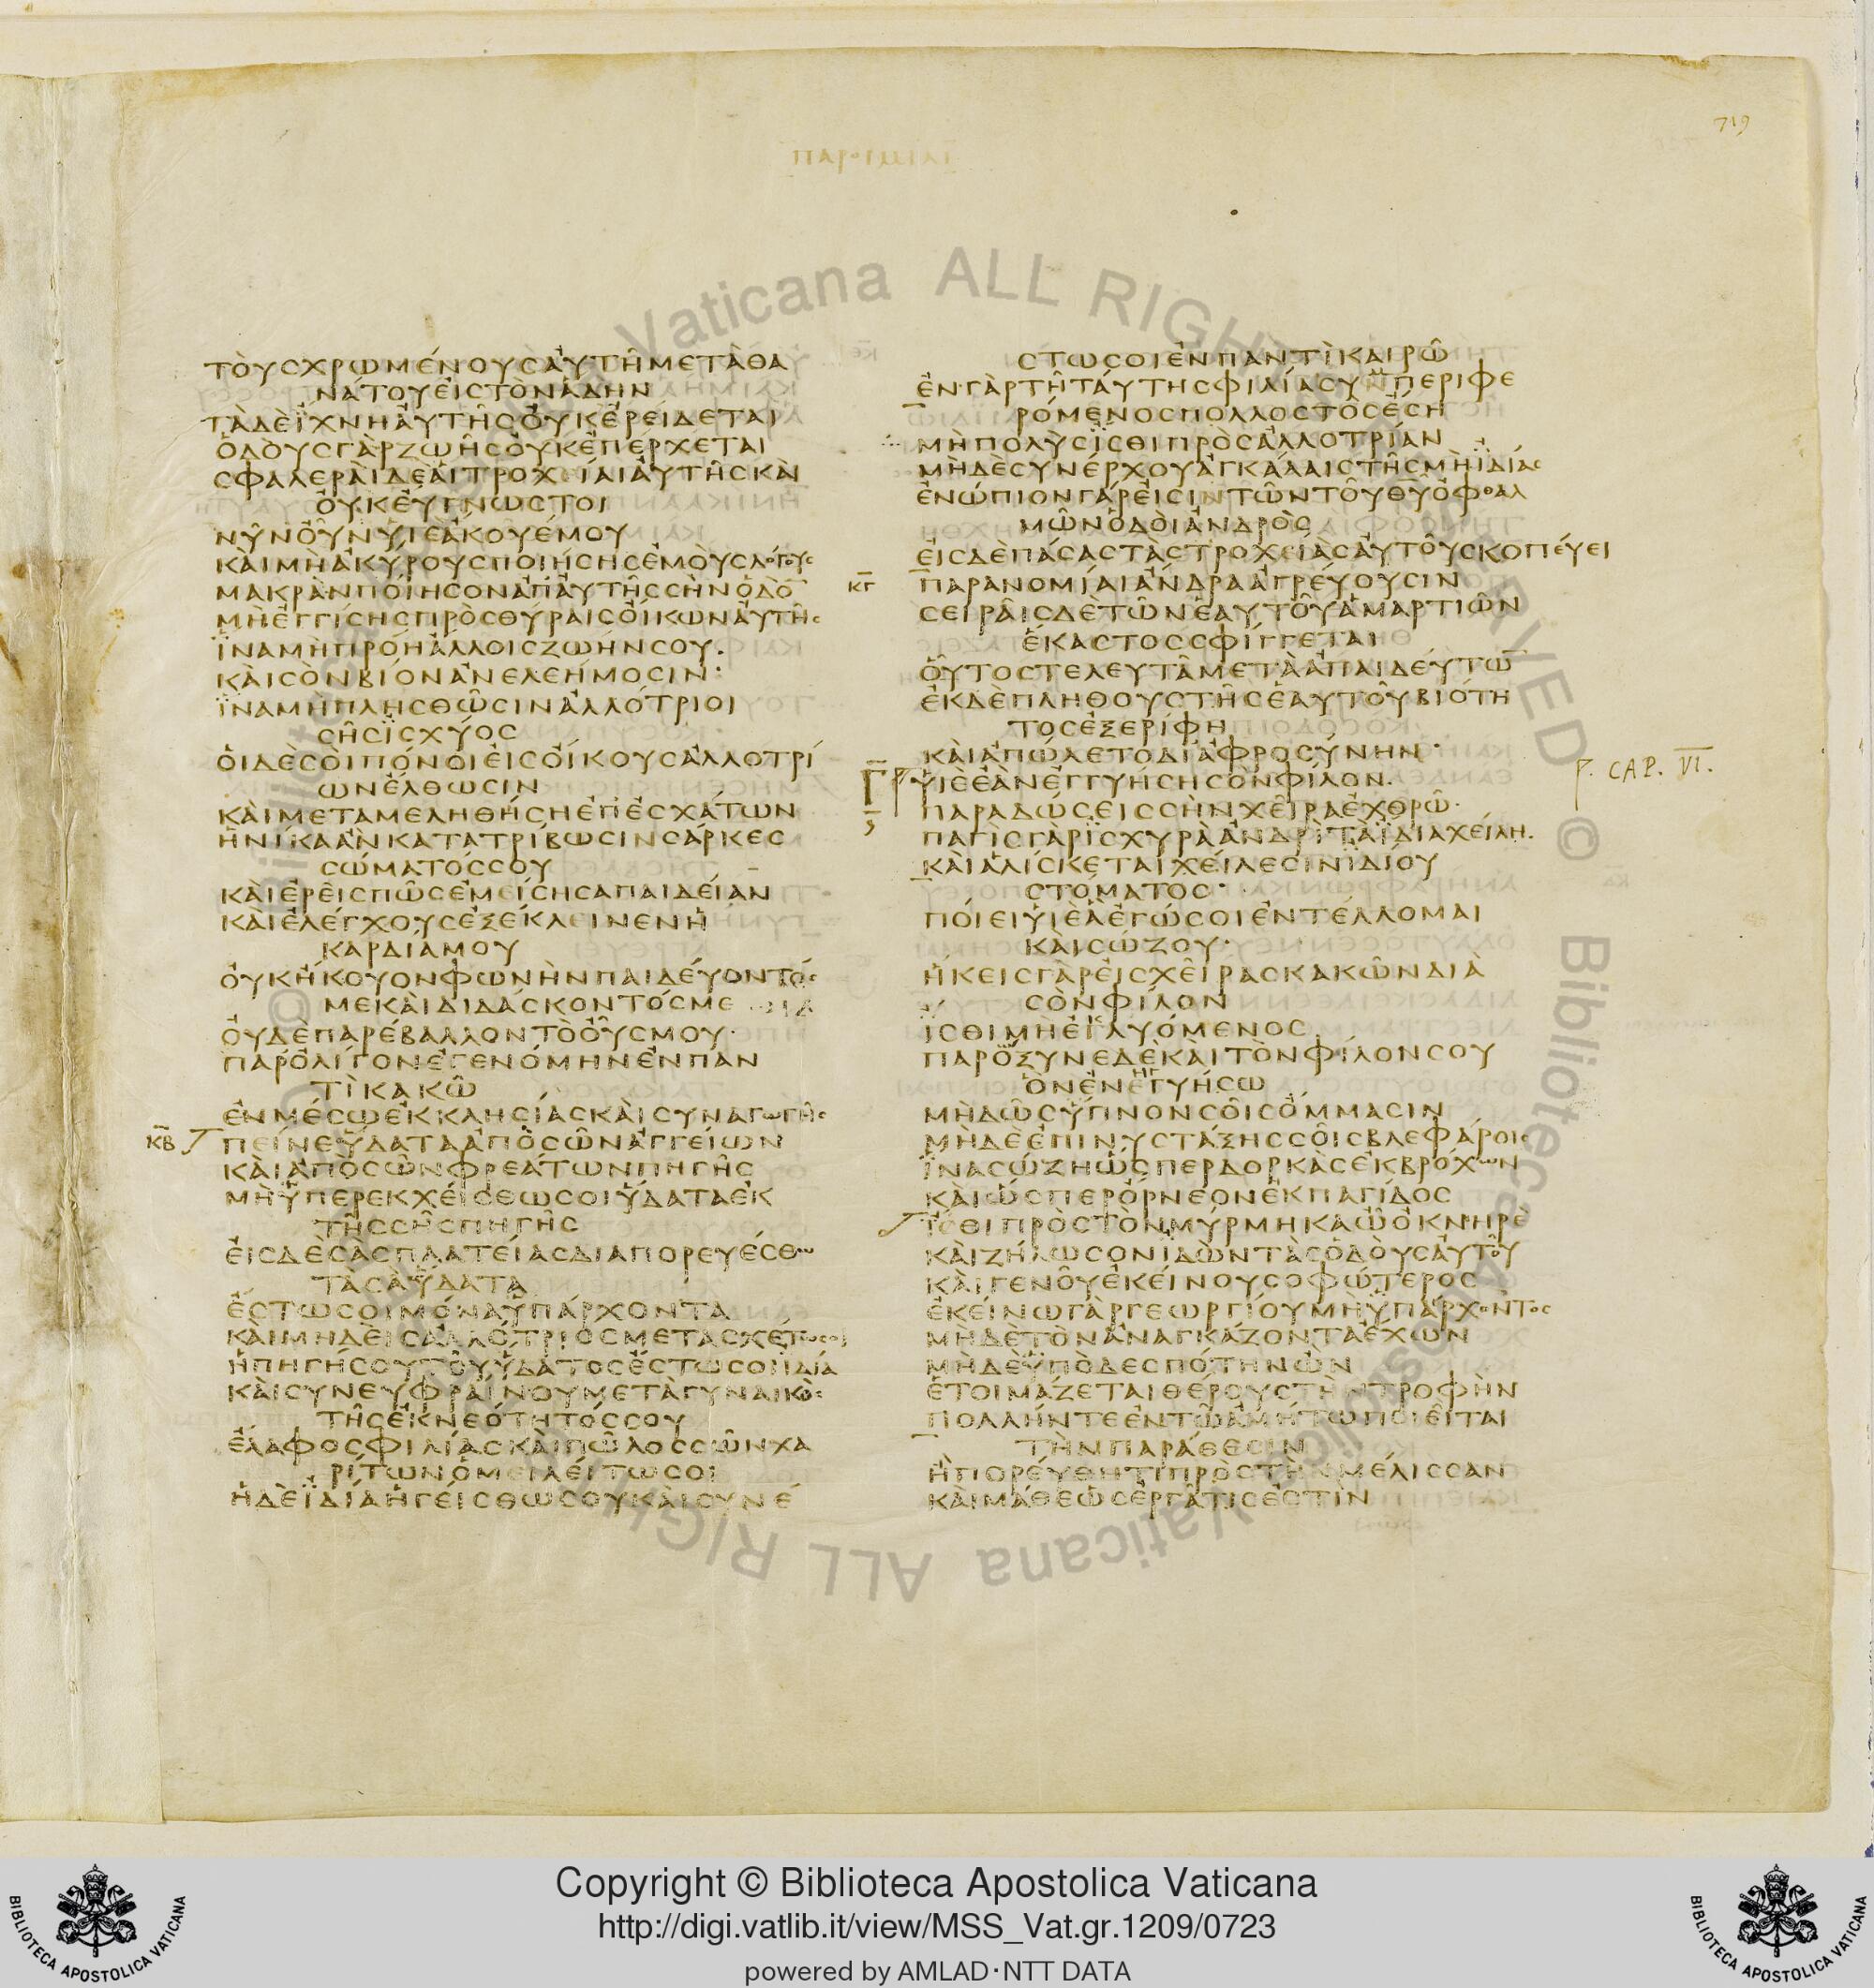 719
ΠΑΡΟΙΜΙΑΙ
ΤΟΥΣΧΡΩΜΕΝΟΥΣΑΥΤΗΜΕΤΑΘΑ
ΝΑΤΟΥΕΙΣΤΟΝΑΔΗΝ
ΤΑΔΕΪΧΝΗΑΥΤΗΣΟΥΚΕΡΕΙΔΕΤΑΙ
ΟΔΟΥΣΓΑΡΖΩΗΣΟΥΚΕΠΕΡΧΕΤΑΙ
ΣΦΑΛΕΡΑΙΔΕΑΙΤΡΟΧΕΙΑΙΑΥΤΗΣΚΑΙ
ΟΥΚΕΥΓΝΩΣΤΟΙ
ΝΥΝΟΥΝΥΙΕΑΚΟΥΕΜΟΥ
ΚΑΙΜΗΑΚΥΡΟΥΣΠΟΙΗΣΗΣΕΜΟΥΣΛΟΓΟΥΣ
ΜΑΚΡΑΝΠΟΙΗΣΟΝΑΠΑΥΤΗΣΣΗΝΟΔΟ̅
ΜΗΕΓΓΙΣΗΣΠΡΟΣΘΥΡΑΙΣΟΙΚΩΝΑΥΤΗΣ
ΪΝΑΜΗΠΡΟΗΑΛΛΟΙΣΖΩΗΝΣΟΥ.
ΚΑΙΣΟΝΒΙΟΝΑΝΕΛΕΗΜΟΣΙΝ·
ΪΝΑΜΗΠΛΗΣΘΩΣΙΝΑΛΛΟΤΡΙΟΙ
ΣΗΣΪΣΧΥΟΣ
ΟΙΔΕΣΟΙΠΟΝΟΙΕΙΣΟΙΚΟΥΣΑΛΛΟΤΡΙ
ΩΝΕΛΘΩΣΙΝ
ΚΑΙΜΕΤΑΜΕΛΗΘΗΣΗΕΠΕΣΧΑΤΩΝ
ΗΝΙΚΑΑΝΚΑΤΑΤΡΙΒΩΣΙΝΣΑΡΚΕΣ
ΣΩΜΑΤΟΣΣΟΥ
ΚΑΙΕΡΕΙΣΠΩΣΕΜΕΙΣΗΣΑΠΑΙΔΕΙΑΝ
ΚΑΙΕΛΕΓΧΟΥΣΕΞΕΚΛΕΙΝΕΝΗ
ΚΑΡΔΙΑΜΟΥ
ΟΥΚΗΚΟΥΟΝΦΩΝΗΝΠΑΙΔΕΥΟΝΤΟΣ
ΜΕΚΑΙΔΙΔΑΣΚΟΝΤΟΣΜΕ
ΟΥΔΕΠΑΡΕΒΑΛΛΟΝΤΟΟΥΣΜΟΥ·
ΠΑΡΟΛΙΓΟΝΕΓΕΝΟΜΗΝΕΝΠΑΝ
ΤΙΚΑΚΩ
ΕΝΜΕΣΩΕΚΚΛΗΣΙΑΣΚΑΙΣΥΝΑΓΩΓΗΣ
Κ̅Β̅ ΠΕΙΝΕΫΔΑΤΑΑΠΟΣΩΝΑΓΓΕΙΩΝ
ΚΑΙΑΠΟΣΩΝΦΡΕΑΤΩΝΠΗΓΗΣ
ΜΗΫΠΕΡΕΚΧΕΙΣΘΩΣΟΙΫΔΑΤΑΕΚ
ΤΗΣΣΗΣΠΗΓΗΣ
ΕΙΣΔΕΣΑΣΠΛΑΤΕΙΑΣΔΙΑΠΟΡΕΥΕΣΘΩ
ΤΑΣΑΫΔΑΤΑ
ΕΣΤΩΣΟΙΜΟΝΑΫΠΑΡΧΟΝΤΑ
ΚΑΙΜΗΔΕΙΣΑΛΛΟΤΡΙΟΣΜΕΤΑΣΧΕΤΩΣΟΙ
ΗΠΗΓΗΣΟΥΤΟΥΫΔΑΤΟΣΕΣΤΩΣΟΙΪΔΙΑ
ΚΑΙΣΥΝΕΥΦΡΑΙΝΟΥΜΕΤΑΓΥΝΑΙΚΟΣ
ΤΗΣΕΚΝΕΟΤΗΤΟΣΣΟΥ
ΕΛΑΦΟΣΦΙΛΙΑΣΚΑΙΠΩΛΟΣΣΩΝΧΑ
ΡΙΤΩΝΟΜΕΙΛΕΙΤΩΣΟΙ
ΗΔΕΪΔΙΑΗΓΕΙΣΘΩΣΟΥΚΑΙΣΥΝΕ
ΣΤΩΣΟΙΕΝΠΑΝΤΙΚΑΙΡΩ
ΕΝΓΑΡΤΗΤΑΥΤΗΣΦΙΛΙΑΣΥΝΠΕΡΙΦΕ
ΡΟΜΕΝΟΣΠΟΛΛΟΣΤΟΣΕΣΗ
ΜΗΠΟΛΥΣΪΣΘΙΠΡΟΣΑΛΛΟΤΡΙΑΝ
ΜΗΔΕΣΥΝΕΡΧΟΥΑΓΚΑΛΑΙΣΤΗΣΜΗΪΔΙΑΣ
ΕΝΩΠΙΟΝΓΑΡΕΙΣΙΝΤΩΝΤΟΥΘ̅Υ̅ΟΦΘΑΛ
ΜΩΝΟΔΟΙΑΝΔΡΟΣ
ΕΙΣΔΕΠΑΣΑΣΤΑΣΤΡΟΧΕΙΑΣΑΥΤΟΥΣΚΟΠΕΥΕΙ
Κ̅Γ̅ ΠΑΡΑΝΟΜΙΑΙΑΝΔΡΑΑΓΡΕΥΟΥΣΙΝ
ΣΕΙΡΑΙΣΔΕΤΩΝΕΑΥΤΟΥΑΜΑΡΤΙΩΝ
ΕΚΑΣΤΟΣΣΦΙΓΓΕΤΑΙ
ΟΥΤΟΣΤΕΛΕΥΤΑΜΕΤΑΑΠΑΙΔΕΥΤΩ̅
ΕΚΔΕΠΛΗΘΟΥΣΤΗΣΕΑΥΤΟΥΒΙΟΤΗ
ΤΟΣΕΞΕΡΙΦΗ
ΚΑΙΑΠΩΛΕΤΟΔΙΑΦΡΟΣΥΝΗΝ·
Γ̅ ΥΙΕΕΑΝΕΓΓΥΗΣΗΣΟΝΦΙΛΟΝ.
P. CAP. VI.
ΠΑΡΑΔΩΣΕΙΣΣΗΝΧΕΙΡΑΕΧΘΡΩ·
ΠΑΓΙΣΓΑΡΪΣΧΥΡΑΑΝΔΡΙΤΑΪΔΙΑΧΕΙΛΗ.
ΚΑΙΑΛΙΣΚΕΤΑΙΧΕΙΛΕΣΙΝΪΔΙΟΥ
ΣΤΟΜΑΤΟΣ·
ΠΟΙΕΙΥΙΕΑΕΓΩΣΟΙΕΝΤΕΛΛΟΜΑΙ
ΚΑΙΣΩΖΟΥ·
ΗΚΕΙΣΓΑΡΕΙΣΧΕΙΡΑΣΚΑΚΩΝΔΙΑ
ΣΟΝΦΙΛΟΝ
ΙΣΘΙΜΗΕΓΛΥΟΜΕΝΟΣ
ΠΑΡΟΞΥΝΕΔΕΚΑΙΤΟΝΦΙΛΟΝΣΟΥ
ΟΝΕΝΕΓΥΗΣΩ
ΜΗΔΩΣΫΠΝΟΝΣΟΙΣΟΜΜΑΣΙΝ
ΜΗΔΕΕΠΙΝΥΣΤΑΞΗΣΣΟΙΣΒΛΕΦΑΡΟΙΣ
ΪΝΑΣΩΖΗΩΣΠΕΡΔΟΡΚΑΣΕΚΒΡΟΧΩΝ
ΚΑΙΩΣΠΕΡΟΡΝΕΟΝΕΚΠΑΓΙΔΟΣ
ΙΣΘΙΠΡΟΣΤΟΝΜΥΡΜΗΚΑΩΟΚΝΗΡΕ
ΚΑΙΖΗΛΩΣΟΝΙΔΩΝΤΑΣΟΔΟΥΣΑΥΤΟΥ
ΚΑΙΓΕΝΟΥΕΚΕΙΝΟΥΣΟΦΩΤΕΡΟΣ
ΕΚΕΙΝΩΓΑΡΓΕΩΡΓΙΟΥΜΗΫΠΑΡΧΟΝΤΟΣ
ΜΗΔΕΤΟΝΑΝΑΓΚΑΖΟΝΤΑΕΧΩΝ
ΜΗΔΕΫΠΟΔΕΣΠΟΤΗΝΩΝ
ΕΤΟΙΜΑΖΕΤΑΙΘΕΡΟΥΣΤΗΝΤΡΟΦΗΝ
ΠΟΛΛΗΝΤΕΕΝΤΩΑΜΗΤΩΠΟΙΕΙΤΑΙ
ΤΗΝΠΑΡΑΘΕΣΙΝ
ΗΠΟΡΕΥΘΗΤΙΠΡΟΣΤΗΝΜΕΛΙΣΣΑΝ
ΚΑΙΜΑΘΕΩΣΕΡΓΑΤΙΣΕΣΤΙΝ
Vaticana ALL RIGHTS RESERVED © Biblioteca Apostolica Vaticana ALL RIGHTS RESERVED © Biblioteca Apostolica
Copyright © Biblioteca Apostolica Vaticana
http://digi.vatlib.it/view/MSS_Vat.gr.1209/0723
powered by AMLAD·NTT DATA
BIBLIOTECA APOSTOLICA VATICANA
BIBLIOTECA APOSTOLICA VATICANA